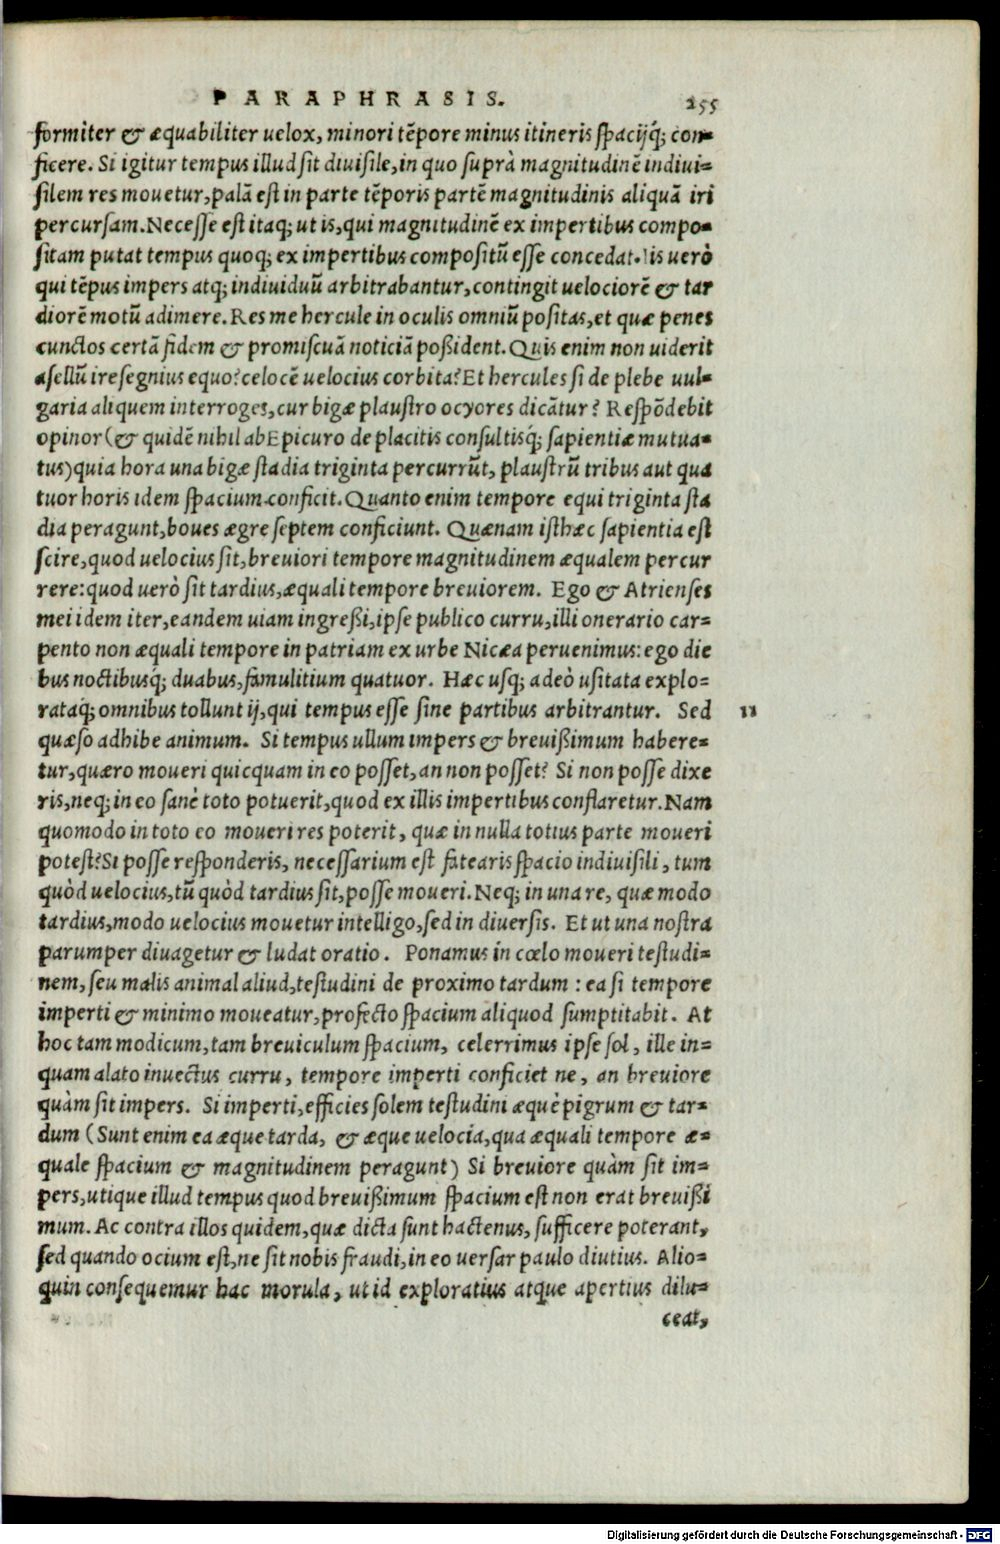 PARAPHRASIS. 255
formiter & æquabiliter uelox, minori tẽpore minus itineris spacijq́; con-
ficere. Si igitur tempus illud sit diuisile, in quo suprà magnitudinẽ indiui-
silem res mouetur, palã est in parte tẽporis partẽ magnitudinis aliquã iri
percursam. Necesse est itaq; ut is, qui magnitudinẽ ex impertibus compo-
sitam putat tempus quoq; ex impertibus compositũ esse concedat. Iis uerò
qui tẽpus impers atq; indiuiduũ arbitrabantur, contingit uelociorẽ & tar
diorẽ motũ adimere. Res me hercule in oculis omniũ positas, et quæ penes
cunctos certã fidem & promiscuã noticiã poßident. Quis enim non uiderit
asellũ ire segnius equo? celocẽ uelocius corbita? Et hercules si de plebe uul-
garia aliquem interroges, cur bigæ plaustro ocyores dicãtur? Respõdebit
opinor (& quidẽ nihil ab Epicuro de placitis consultisq́; sapientiæ mutua-
tus) quia hora una bigæ stadia triginta percurrũt, plaustrũ tribus aut qua
tuor horis idem spacium conficit. Quanto enim tempore equi triginta sta
dia peragunt, boues ægre septem conficiunt. Quænam isthæc sapientia est
scire, quod uelocius sit, breuiori tempore magnitudinem æqualem percur
rere: quod uerò sit tardius, æquali tempore breuiorem. Ego & Atrienses
mei idem iter, eandem uiam ingreßi, ipse publico curru, illi onerario car-
pento non æquali tempore in patriam ex urbe Nicæa peruenimus: ego die
bus noctibusq́; duabus, famulitium quatuor. Hæc usq; adeò usitata explo-
rataq́; omnibus tollunt ij, qui tempus esse sine partibus arbitrantur. Sed 11
quæso adhibe animum. Si tempus ullum impers & breuißimum habere-
tur, quæro moueri quicquam in eo posset, an non posset? Si non posse dixe
ris, neq; in eo sanè toto potuerit, quod ex illis impertibus conflaretur. Nam
quomodo in toto eo moueri res poterit, quæ in nulla totius parte moueri
potest? Si posse responderis, necessarium est fatearis spacio indiuisili, tum
quòd uelocius, tũ quòd tardius sit, posse moueri. Neq; in una re, quæ modo
tardius, modo uelocius mouetur intelligo, sed in diuersis. Et ut una nostra
parumper diuagetur & ludat oratio. Ponamus in cœlo moueri testudi-
nem, seu malis animal aliud, testudini de proximo tardum: ea si tempore
imperti & minimo moueatur, profecto spacium aliquod sumptitabit. At
hoc tam modicum, tam breuiculum spacium, celerrimus ipse sol, ille in-
quam alato inuectus curru, tempore imperti conficiet ne, an breuiore
quàm sit impers. Si imperti, efficies solem testudini æquè pigrum & tar-
dum (Sunt enim ea æque tarda, & æque uelocia, qua æquali tempore æ-
quale spacium & magnitudinem peragunt) Si breuiore quàm sit im-
pers, utique illud tempus quod breuißimum spacium est non erat breuißi
mum. Ac contra illos quidem, quæ dicta sunt hactenus, sufficere poterant,
sed quando ocium est, ne sit nobis fraudi, in eo uersar paulo diutius. Alio-
quin consequemur hac morula, ut id exploratius atque apertius dilu-
ceat,
Digitalisierung gefördert durch die Deutsche Forschungsgemeinschaft - DFG